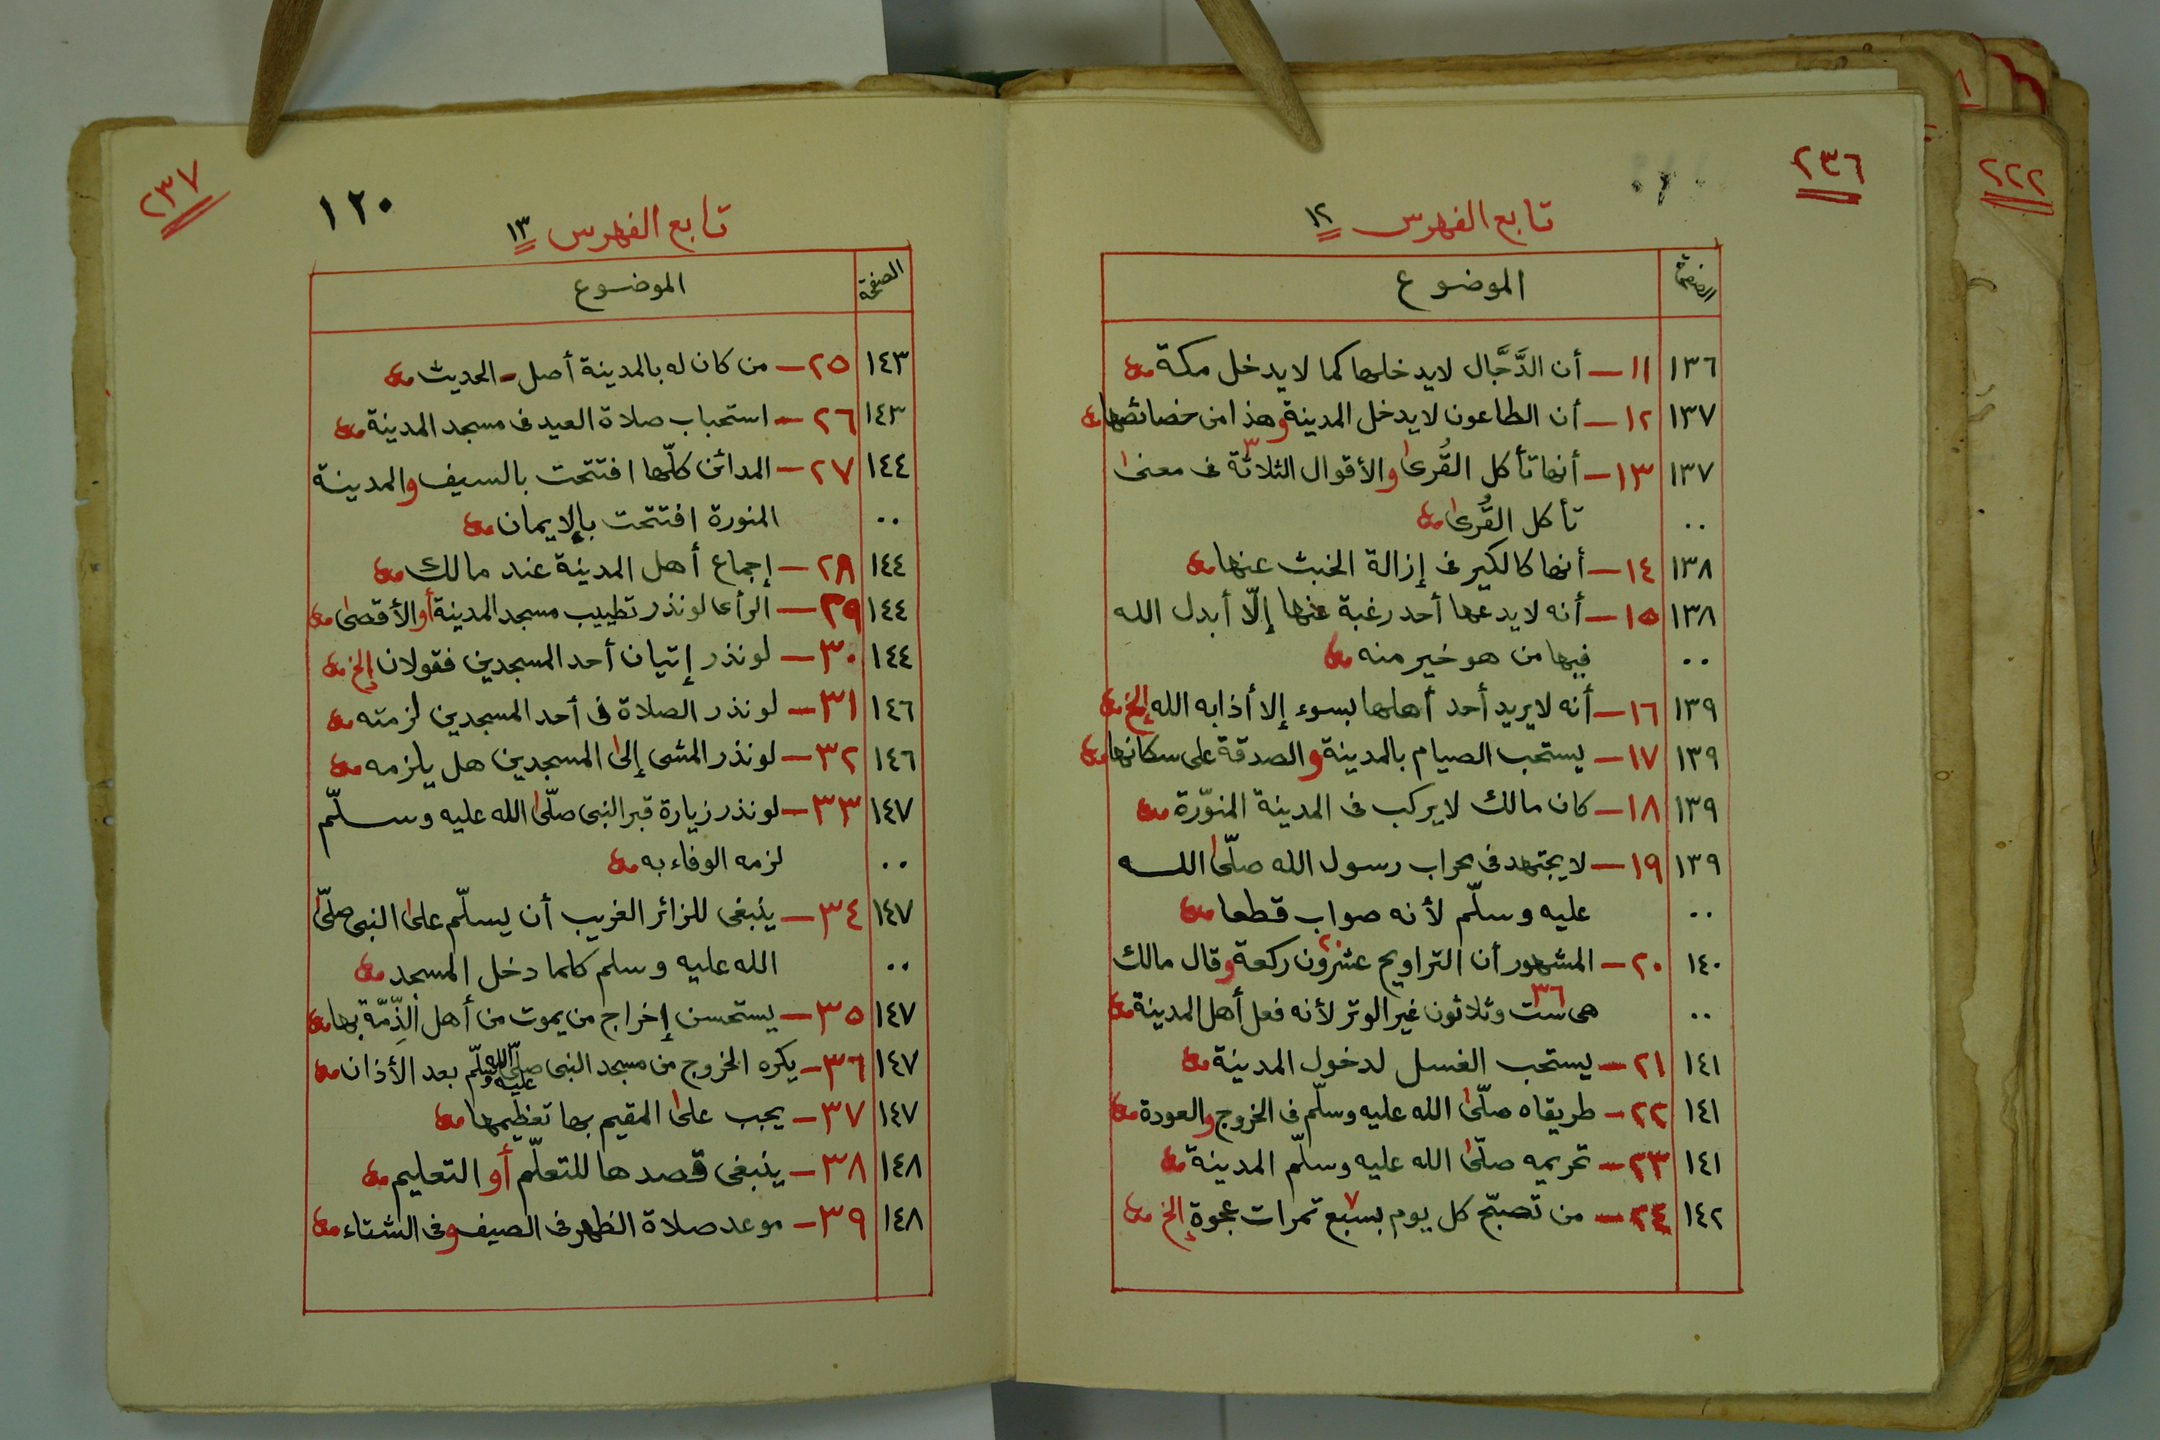 ٢٣٦
تابع الفهرس ١٢
الصفحة الموضوع
١٣٦ ١١ـ أن الدَّجَّال لايدخلها كما لايدخل مكة
١٣٧ ١٢ـ أن الطاعون لايدخل المدينة وهذا من خصائصها
١٣٧ ١٣ـ أنها تأكل القُرىٰ والأقوال الثلاثة ٣ فى معنىٰ
٠٠ تأكل القُرىٰ
١٣٨ ١٤ـ أنها كالكير فى إزالة الخبث عنها
١٣٨ ١٥ـ أنه لايدعها أحد رغبة عنها إلّا أبدل الله
٠٠ فيها من هو خير منه
١٣٩ ١٦ـ أنه لايريد أحد أهلها بسوء إلا أذابه الله إلخ
١٣٩ ١٧ـ يستحب الصيام بالمدينة والصدقة على سكانها
١٣٩ ١٨ـ كان مالك لايركب فى المدينة المنوّرة
١٣٩ ١٩ـ لايجتهد فى محراب رسول الله صلّىٰ اللـــه
٠٠ عليه وسلّم لأنه صواب قطعا
١٤٠ ٢٠ـ المشهور أن التراويح عشرون ٢٠ ركعة وقال مالك
٠٠ هى ست ٣٦ وثلاثون غير الوتر لأنه فعل أهل المدينة
١٤١ ٢١ـ يستحب الغسل لدخول المدينة
١٤١ ٢٢ـ طريقاه صلّىٰ الله عليه وسلّم فى الخروج والعودة
١٤١ ٢٣ـ تحريمه صلّىٰ الله عليه وسلّم المدينة
١٤٢ ٢٤ـ من تصبّح كل يوم بسبع ٧ تمرات عجوة إلخ
٢٢٢
٢٣٧
١٢٠
تابع الفهرس ١٣
الصفحة الموضوع
١٤٣ ٢٥ـ من كان له بالمدينة أصل ـ الحديث
١٤٣ ٢٦ـ استحباب صلاة العيد فى مسجد المدينة
١٤٤ ٢٧ـ المدائن كلّها افتتحت بالسيف والمدينة
٠٠ المنورة افتتحت بالإيمان
١٤٤ ٢٨ـ إجماع أهل المدينة عند مالك
١٤٤ ٢٩ـ الرأى لو نذر تطييب مسجد المدينة أو الأقصىٰ
١٤٤ ٣٠ـ لو نذر إتيان أحد المسجدين فقولان إلخ
١٤٦ ٣١ـ لو نذر الصلاة فى أحد المسجدين لزمته
١٤٦ ٣٢ـ لو نذر المشى إلىٰ المسجدين هل يلزمه
١٤٧ ٣٣ـ لو نذر زيارة قبر النبى صلّىٰ الله عليه وسـلّم
٠٠ لزمه الوفاء به
١٤٧ ٣٤ـ ينبغى للزائر الغريب أن يسلّم علىٰ النبى صلّىٰ
٠٠ الله عليه وسلم كلما دخل المسجد
١٤٧ ٣٥ـ يستحسن إخراج من يموت من أهل الذِّمّة بها
١٤٧ ٣٦ـ يكره الخروج من مسجد النبى صلّىٰ الله عليه وسلّم بعد الأذان
١٤٧ ٣٧ـ يجب علىٰ المقيم بها تعظيمها
١٤٨ ٣٨ـ ينبغى قصدها للتعلّم أو التعليم
١٤٨ ٣٩ـ موعد صلاة الظهر فى الصيف وفى الشتاء